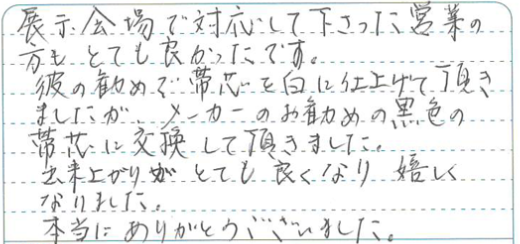 展示会場で対応して下さった営業の
方もとても良かったです。
彼の勧めで帯芯を白に仕上げて頂き
ましたが、メーカーのお勧めの黒色の
帯芯に交換して頂きました。
出来上がりがとても良くなり 嬉しく
なりました。
本当にありがとうございました。